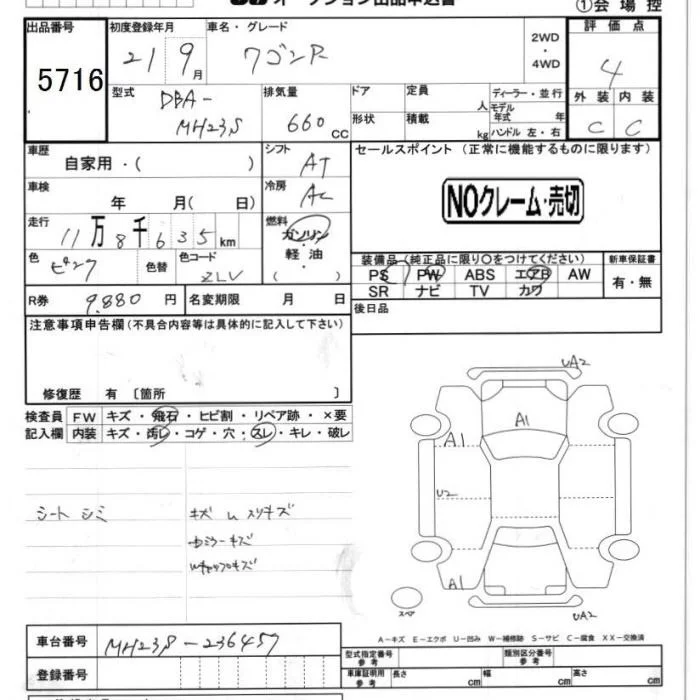 オークション出品申込書
①会場控
出品番号 初度登録年月 車名・グレード 2WD・4WD 評価点
5716 21 9月 ワゴンR 4
型式 DBA-MH23S 排気量 660 cc ドア 定員 人 ディーラー・並行 外装 内装
形状 積載 kg モデル年式 年 ハンドル 左・右 C C
車歴 自家用・( ) シフト AT セールスポイント (正常に機能するものに限ります)
車検 年 月( 日) 冷房 AC NOクレーム・売切
走行 11万8千635km 燃料 ガソリン・軽油・( )
色 ピンク 色替 色コード ZLV
装備品 (純正品に限り○をつけてください) 新車保証書
PS PW ABS エアB AW 有・無
SR ナビ TV カワ
R券 9.880 円 名変期限 月 日 後日品
注意事項申告欄(不具合内容等は具体的に記入して下さい)
修復歴 有 〔箇所 〕
検査員 FW キズ・飛石・ヒビ割・リペア跡・×要
記入欄 内装 キズ・汚レ・コゲ・穴・スレ・キレ・破レ
UA2
A1
A1
U2
シート シミ
キズ ム スリキズ
A1
スペア
UA2
A-キズ E-エクボ U-凹み W-補修跡 S-サビ C-腐食 XX-交換済
車台番号 MH23S-236457
型式指定番号 参考 類別区分番号 参考
登録番号 車庫証明用 参考 長さ cm 幅 cm 高さ cm